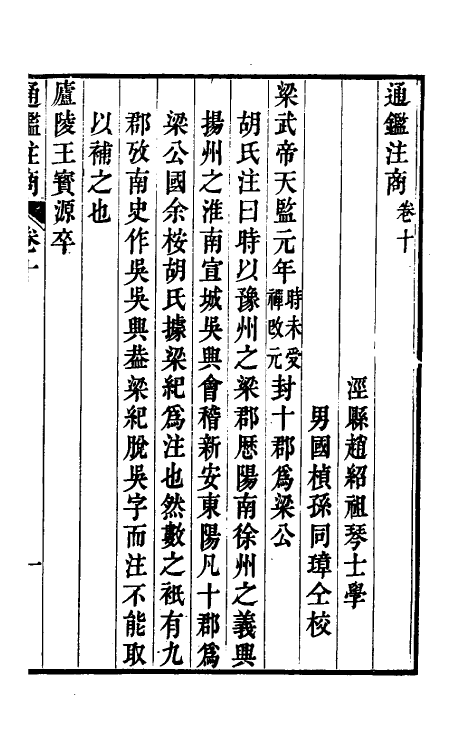 通鑑注商卷十
涇縣趙紹祖琴士學
男國楨孫同璋仝校
梁武帝天監元年時未受禪改元封十郡為梁公
胡氏注曰時以豫州之梁郡歷陽南徐州之義興
揚州之淮南宣城吳興會稽新安東陽凡十郡為
梁公國余桉胡氏據梁紀為注也然數之祇有九
郡攷南史作吳吳興葢梁紀脫吳字而注不能取
以補之也
廬陵王寳源卒
通鑑注商 卷十 一